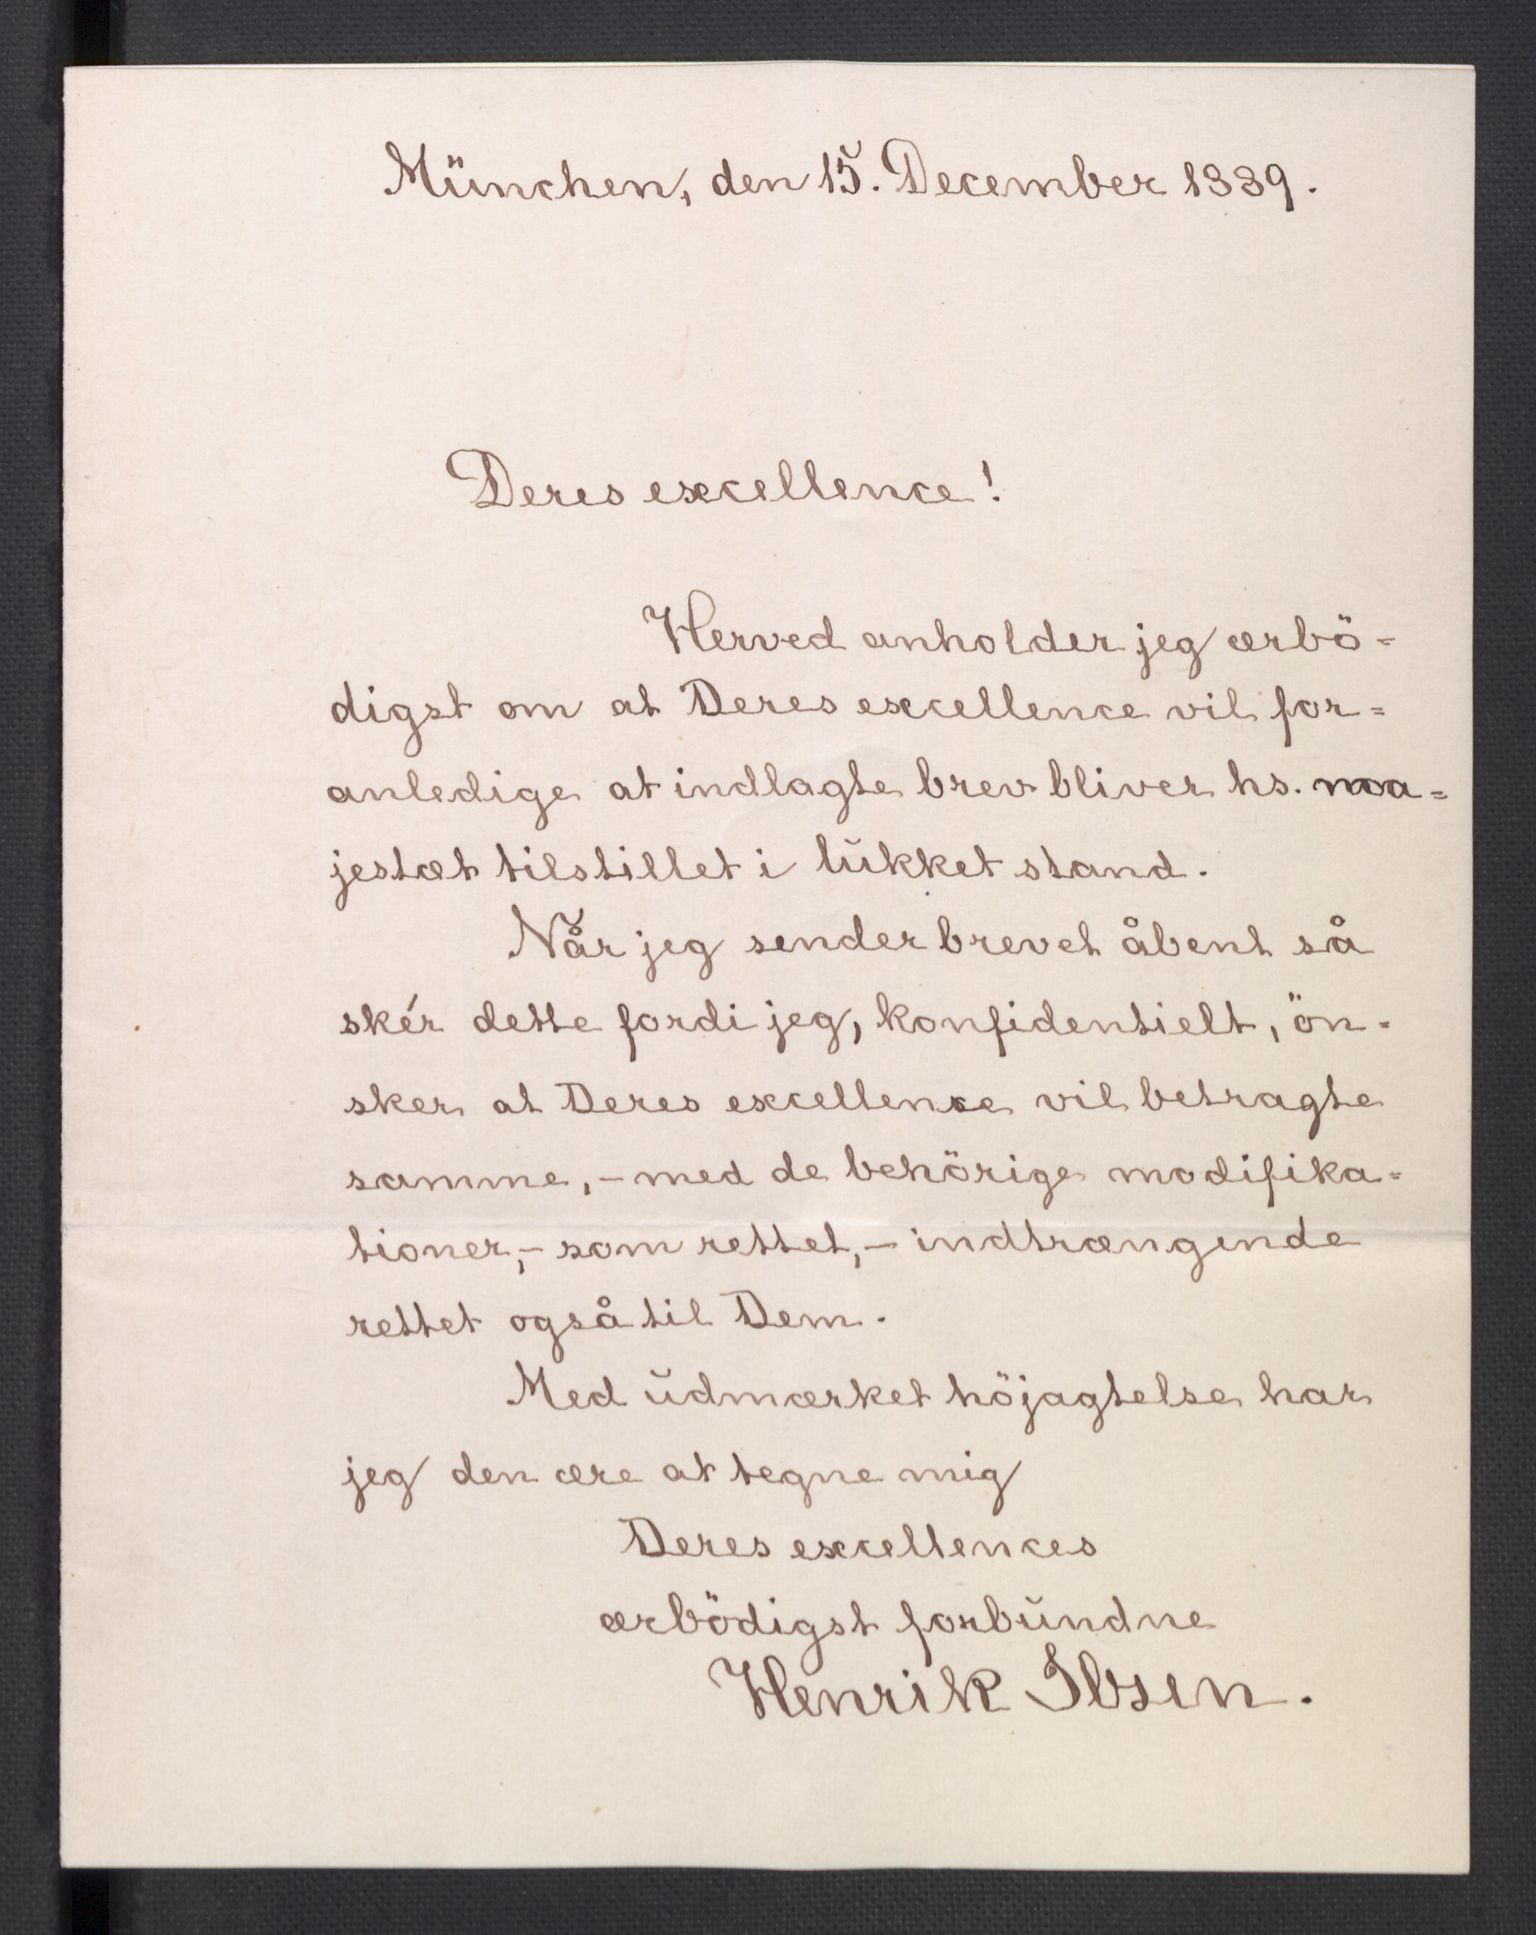 München, den 15. December 1889.
Deres excellence!
Herved anholder jeg ærbö=
digst om at Deres excellence vil for=
anledige at indlagte brev bliver hs. ma=
jestæt tilstillet i lukket stand.
Når jeg sender brevet åbent så
skér dette fordi jeg, konfidentielt, ön=
sker at Deres excellence vil betragte
samme, – med de behörige modifika=
tioner, – som rettet, – indtrængende
rettet også til Dem.
Med udmærket höjagtelse har
jeg den ære at tegne mig
Deres excellences
ærbödigst forbundne
Henrik Ibsen.